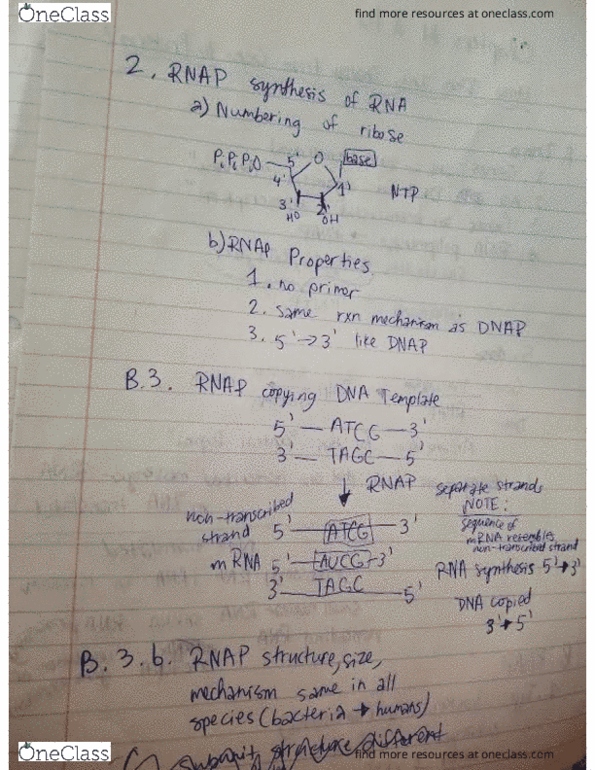 OneClass
find more resources at oneclass.com
2. RNAP synthesis of RNA
a) Numbering of ribose
PiPiPiO 5' O base
4' 1' NTP
3' 2'
HO OH
b) RNAP Properties
1. no primer
2. same rxn mechanism as DNAP
3. 5' → 3' like DNAP
B.3. RNAP copying DNA Template
5' — ATCG — 3'
3' — TAGC — 5'
↓ RNAP
separate strands
NOTE:
sequence of
mRNA resembles
non-transcribed strand
non-transcribed
strand 5' ATCG 3'
mRNA 5' AUCG 3'
3' TAGC 5'
RNA synthesis 5' → 3'
DNA copied
3' → 5'
B.3.b. RNAP structure, size,
mechanism same in all
species (bacteria → humans)
subunit structure different
OneClass
find more resources at oneclass.com